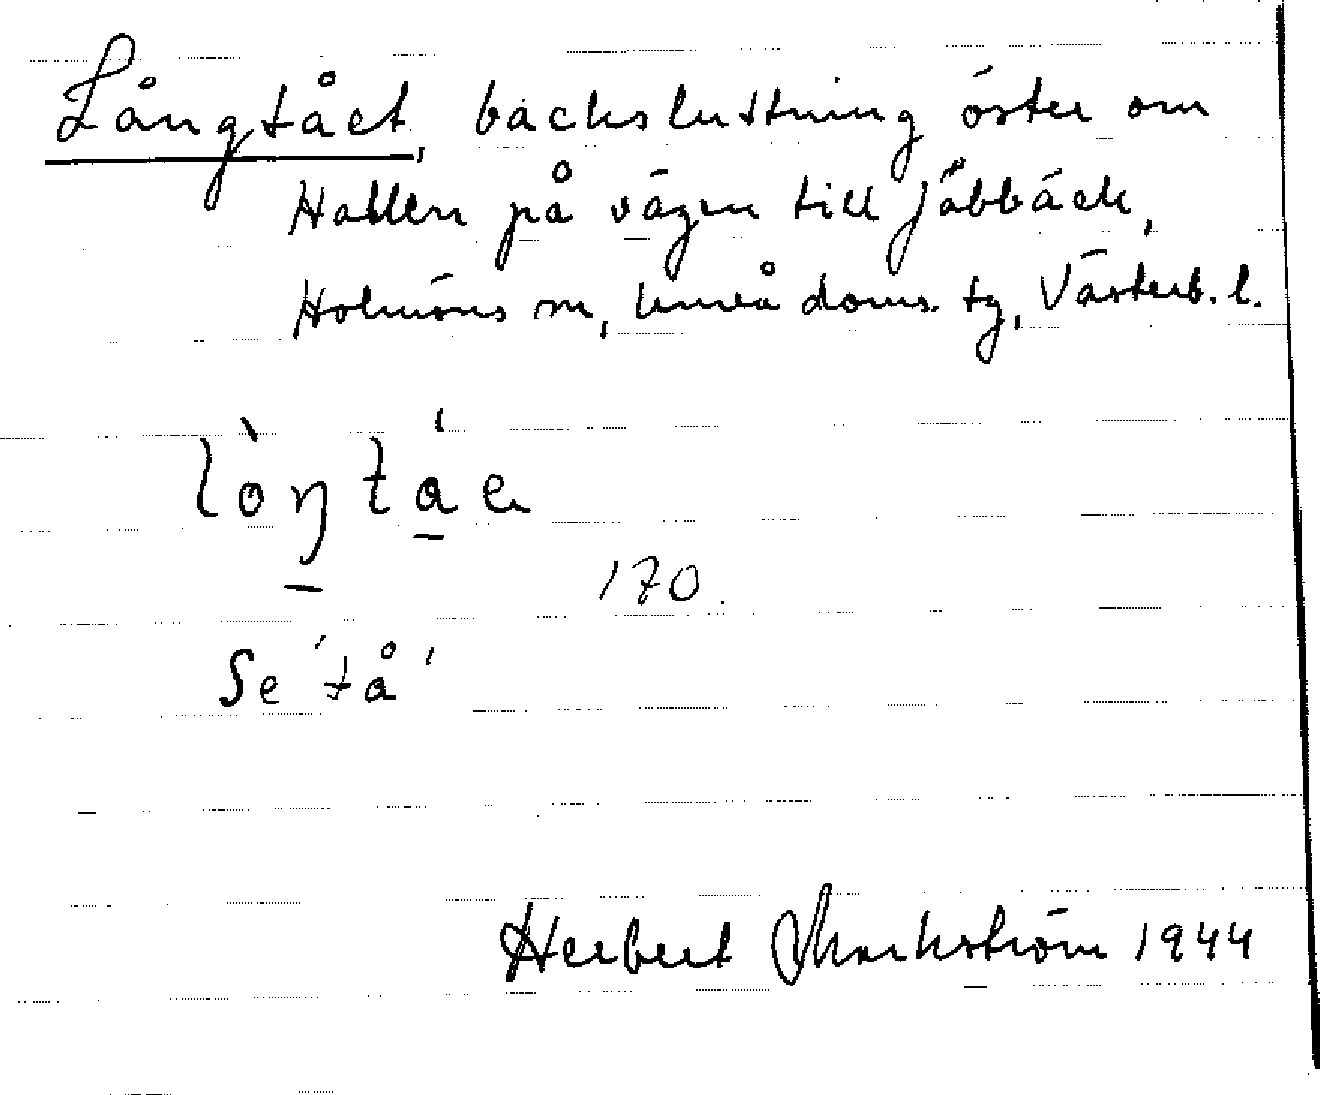 Långtået, backsluttning öster om
Hallen på vägen till Jäbbäck,
Holmöns sn, Umeå doms. tg, Västerb. l.
170.
Se 'tå'
Herbert Markström 1944